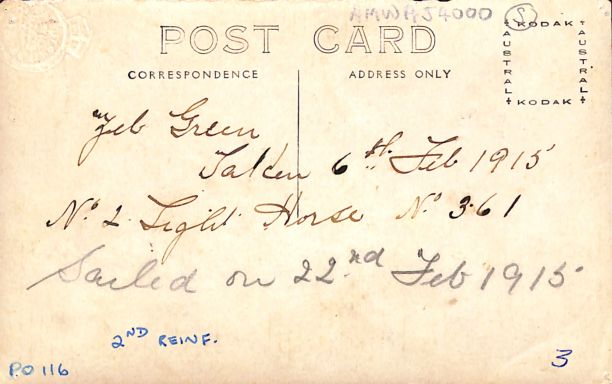 AMWHJ4000 S
POST CARD
KODAK
AUSTRAL
AUSTRAL
KODAK
CORRESPONDENCE
ADDRESS ONLY
Zeb Green
Taken 6th Feb 1915
No 2 Light Horse No 361
Sailed on 22nd Feb 1915
2ND REINF.
PO 116
3